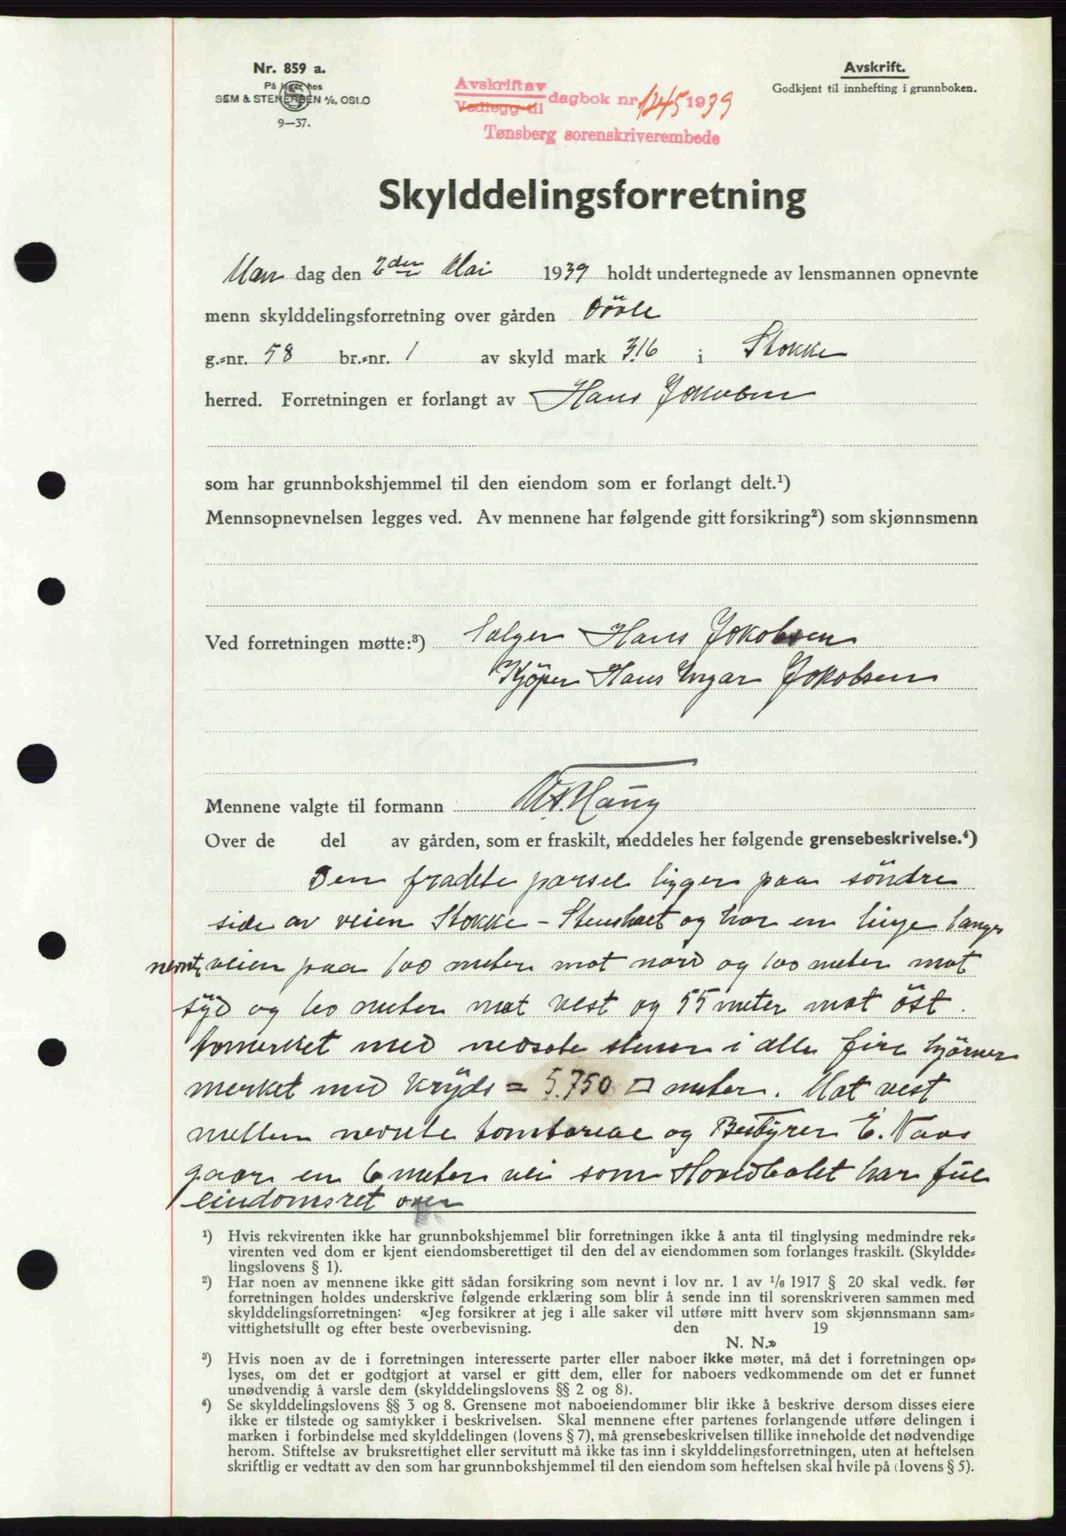 Nr. 859 a.
På lager hos
SEM & STENERSEN A/S, OSLO
9—37.
Avskrift av
Vedlegg til
dagbok nr 1245 1939
Tønsberg sorenskriverembede
Avskrift.
Godkjent til innhefting i grunnboken.
Skylddelingsforretning
Man dag den 2den Mai 1939 holdt undertegnede av lensmannen opnevnte
menn skylddelingsforretning over gården Dövle
g.-nr. 58 br.-nr. 1 av skyld mark 3.16 i Stokke
herred. Forretningen er forlangt av Hans Jokobsen
som har grunnbokshjemmel til den eiendom som er forlangt delt.¹)
Mennsopnevnelsen legges ved. Av mennene har følgende gitt forsikring²) som skjønnsmenn
Ved forretningen møtte:³) Selger Hans Jokobsen
Kjöper Hans Ingar Jokobsen
Mennene valgte til formann Haug
Over de del av gården, som er fraskilt, meddeles her følgende grensebeskrivelse.⁴)
Den fradelte parsel ligger paa söndre
side av veien Stokke – Stensholt og har en linje langs
nevnte veien paa 100 meter mot nord og 100 meter mot
syd og 60 meter mot vest og 55 meter mot öst.
tomerket med nedsatte stener i alle fire hjörner
merket med kryds = 5.750 □ meter. Mot vest
mellem nevnte tomtareal og Bestyrer E. Naas
gaar en 6 meter vei som Hovedbölet har full
eiendomsret over
¹) Hvis rekvirenten ikke har grunnbokshjemmel blir forretningen ikke å anta til tinglysing medmindre rek-
virenten ved dom er kjent eiendomsberettiget til den del av eiendommen som forlanges fraskilt. (Skyldde-
lingslovens § 1).
²) Har noen av mennene ikke gitt sådan forsikring som nevnt i lov nr. 1 av 1/6 1917 § 20 skal vedk. før
forretningen holdes underskrive følgende erklæring som blir å sende inn til sorenskriveren sammen med
skylddelingsforretningen: «Jeg forsikrer at jeg i alle saker vil utføre mitt hverv som skjønnsmann sam-
vittighetsfullt og efter beste overbevisning. den 19
N. N.»
³) Hvis noen av de i forretningen interesserte parter eller naboer ikke møter, må det i forretningen op-
lyses, om det er godtgjort at varsel er gitt dem, eller for naboers vedkommende om det er funnet
unødvendig å varsle dem (skylddelingslovens §§ 2 og 8).
⁴) Se skylddelingslovens §§ 3 og 8. Grensene mot naboeiendommer blir ikke å beskrive dersom disses eiere
ikke er tilstede og samtykker i beskrivelsen. Skal mennene efter partenes forlangende utføre delingen i
marken i forbindelse med skylddelingen (lovens § 7), må grensebeskrivelsen tillike inneholde det nødvendige
herom. Stiftelse av bruksrettighet eller servitutt må ikke tas inn i skylddelingsforretningen, uten at heftelsen
skriftlig er vedtatt av den som har grunnbokshjemmel til den eiendom som heftelsen skal hvile på (lovens § 5).